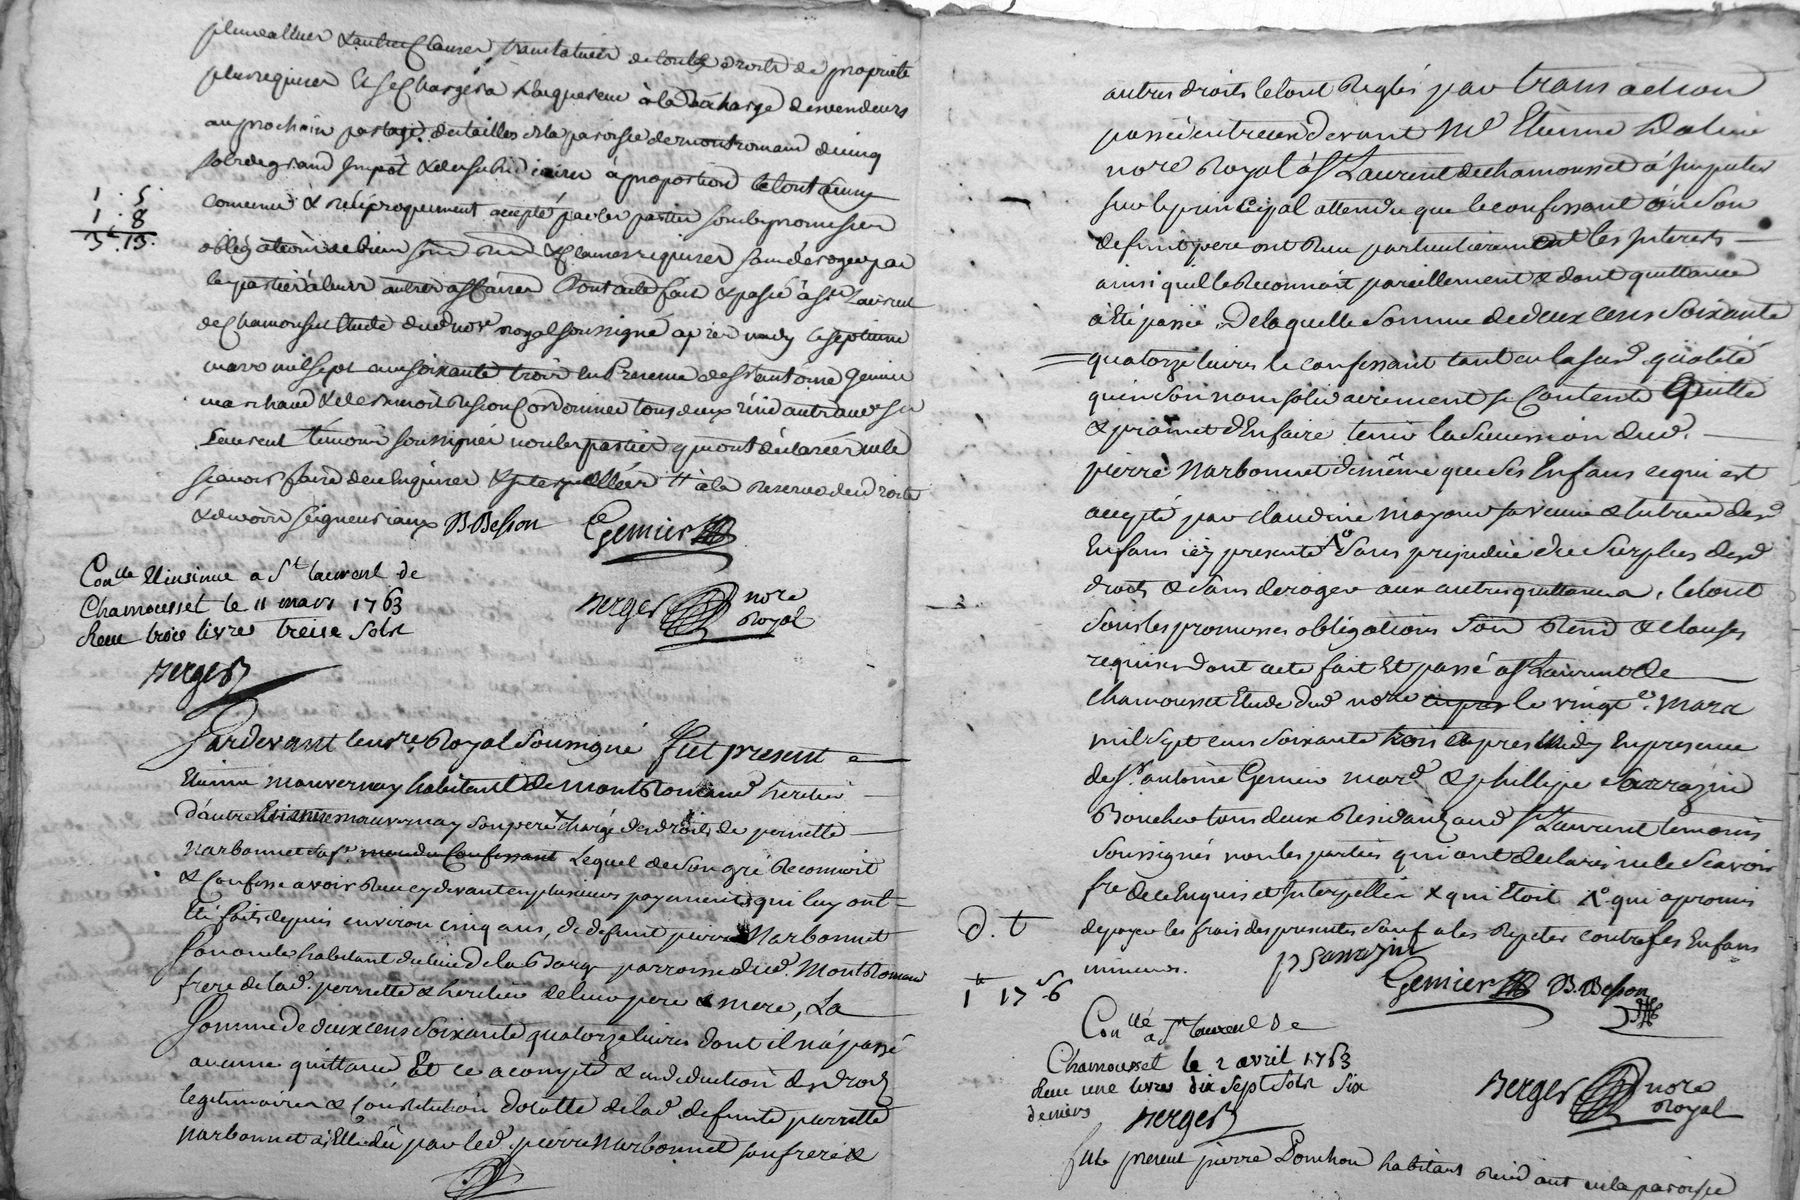 plusvalluer & autres Clauses translatives de touts droits de propriété
plus requises Et se Chargera l'acquereur à la décharge des vendeurs
au prochain partage des tailles de la paroisse de montromand de cinq
sols de grand Impôt & des subsidiaires à proportion le tout ainsy
convenu & réciproquement accepté par les parties sous les promesses
obligations de biens soum renon & Clauses requises sans déroger par
les parties à leurs autres affaires Dont acte fait & passé à St Laurent
de Chamousset Etude dud nore royal soussigné apres midy le septieme
mars mil sept cens soixante trois En Presence de Sr antoine Gemier
marchand & de benoit Besson Cordonnier tous deux résid audit St
Laurent témoins soussignés non les parties qui ont déclaré ne le
sçavoir faire de ce Enquises & Interpellées à la reserve des droits
& devoirs seigneuriaux B. Besson Gemier
1. 5.
1. 8
3tt. 13.
Conllé & insinué a St laurent de
Chamousset le 11 mars 1763
Recu trois livres treise sols
Berger
Berger nore
Royal
Pardevant le nore Royal Soussigné fut present
Etienne mauvernay habitant de montromand heritier
d'autre Etienne mauvernay son pere chargé des droits de pernette
Narbonnet sa fe. mere du Confessant Lequel de son gré Reconnoit
& Confesse avoir Receu cy devant en plusieurs payements qui luy ont
Eté faits depuis environ cinq ans, de defunt pierre Narbonnet
habitant du lieu de la Barge parroisse dud. Montromand
frere de lad. pernette & heritier de leurs pere & mere, La
Somme de deux cens soixante quatorze livres dont il n'a passé
aucune quittance Et ce a compte & en deduction des droits
legitimaires & Constitution dotalle de lad. defunte pernette
Narbonnet a Elle dû par led. pierre Narbonnet son frere &
autres droits le tout Reglés par transaction
passée entre eux devant Me Etienne
nore Royal à St Laurent de chamousset à Imputer
sur le principal attendu que le confessant ou Son
defunt pere ont Reçu particulierement les Interests
ainsi qu'il le Reconnoit pareillement & dont quittance
à été passée. De laquelle Somme de deux cens Soixante
quatorze livres le confessant tant en la susd. qualité
qu'en Son nom solidairement se Contente Quitte
& promet d'En faire tenir la Succession dud.
pierre Narbonnet de même que ses Enfans ce qui est
accepté par claudine mayoud sa veuve & tutrice desd
Enfans icy presente Sans prejudice du Surplus desd
droits & Sans deroger aux autres quittances. le tout
Sous les promesses obligations Soum Renon & clauses
requises dont acte fait Et passé a St Laurent de
chamousset Etude dud nore le vingt e. mars
mil sept cens soixante trois apres Midy En presence
de Sr. antoine Gemier mard. & phillipe Sarrazin
Boucher tous deux Residants aud St Laurent temoins
soussignés non les parties qui ont declaré ne le Scavoir
fre de ce Enquis et Interpellés & qui Etoit qui a promis
depayer les frais des presentes Sauf a les Repeter contre ses Enfans
mineurs. p Sarrazin
Gemier B. Besson
d. t
1tt 17s 6
Conllé a St laurent de
Chamousset le 2 avril 1763
Recu une livre dix sept sols six
deniers
Berger
Berger nore
Royal
fut present pierre Ponchon habitant résidant en la paroisse